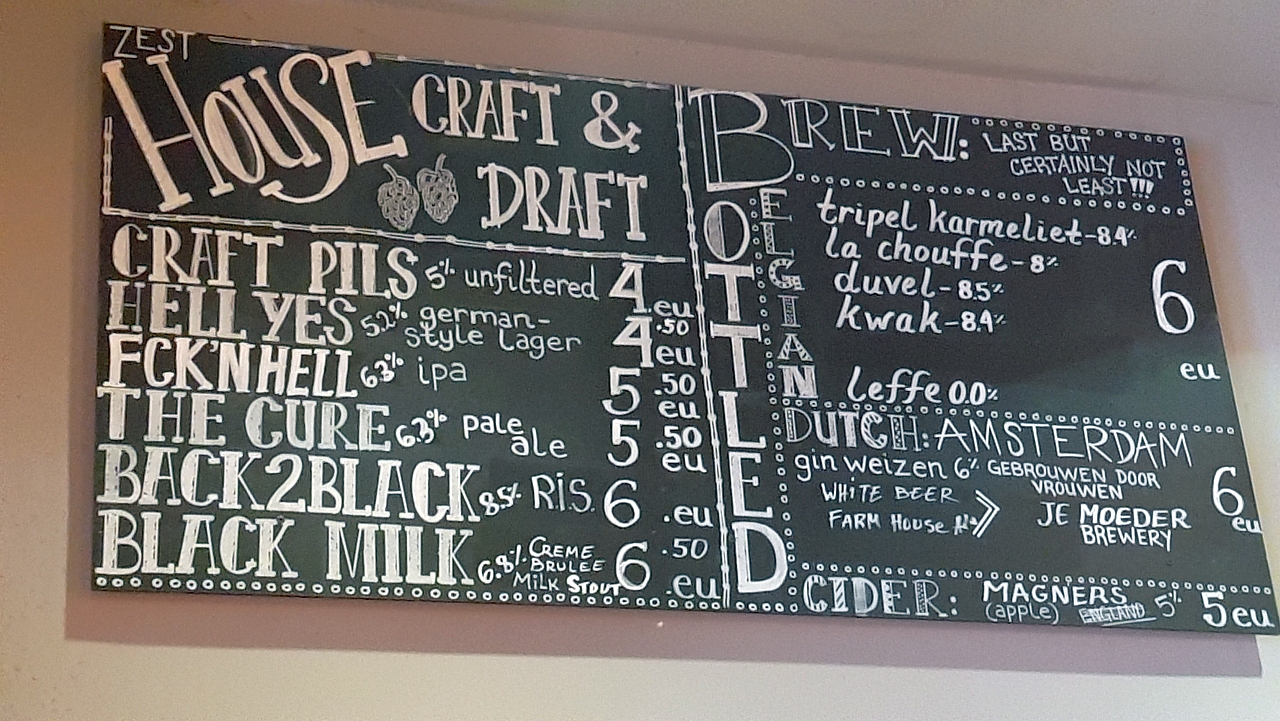 ZEST
HOUSE CRAFT &
DRAFT
CRAFT PILS 5% unfiltered 4 eu
HELL YES 5.2% german-style lager 4.50 eu
FCK'N HELL 6.3% ipa 5.50 eu
THE CURE 6.3% pale ale 5.50 eu
BACK2BLACK 8.5% RIS. 6 .eu
BLACK MILK 6.8% CREME BRULEE MILK STOUT 6.50 .eu
BOTTLED
BREW: LAST BUT
CERTAINLY NOT
LEAST!!!
BELGIAN
tripel karmeliet-8.4%
la chouffe-8%
duvel-8.5%
kwak-8.4%
6 eu
leffe 0.0%
DUTCH: AMSTERDAM
gin weizen 6% GEBROUWEN DOOR
VROUWEN
WHITE BEER
FARM HOUSE
JE MOEDER
BREWERY
6 eu
CIDER: MAGNERS
(apple) ENGLAND 5% 5 eu